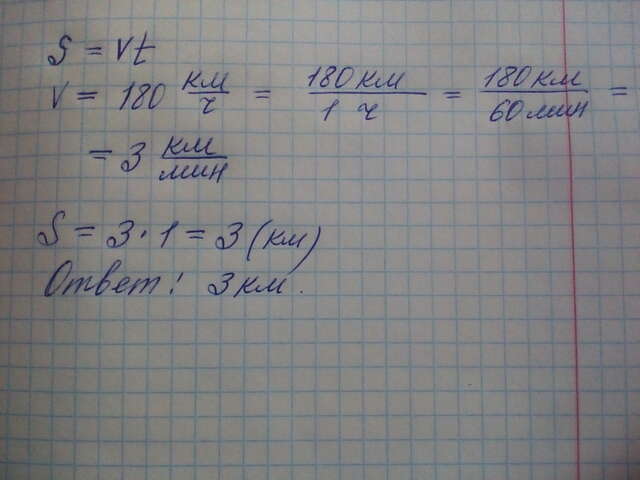 S = Vt
V = 180 км/ч = 180 км/1 ч = 180 км/60 мин =
= 3 км/мин
S = 3 · 1 = 3 (км)
Ответ: 3 км.